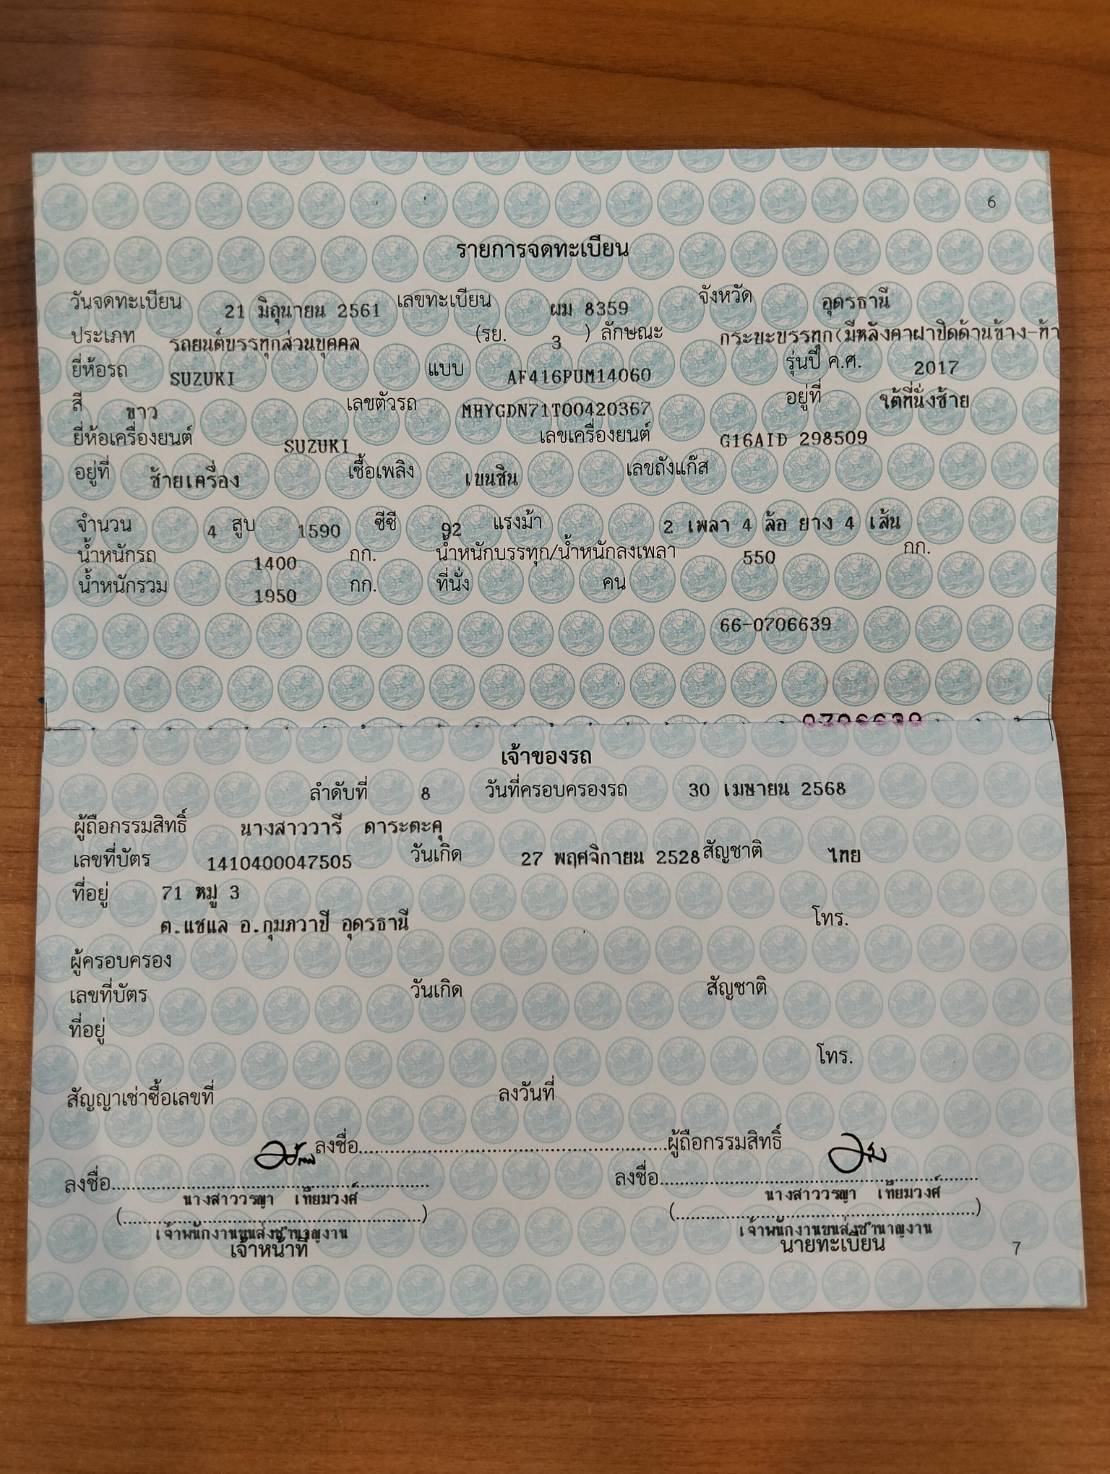 6
รายการจดทะเบียน
วันจดทะเบียน 21 มิถุนายน 2561 เลขทะเบียน ผม 8359 จังหวัด อุดรธานี
ประเภท รถยนต์บรรทุกส่วนบุคคล (รย. 3 ) ลักษณะ กระบะบรรทุก(มีหลังคาฝาปิดด้านข้าง-ท้า
ยี่ห้อรถ SUZUKI แบบ AF416PUM14060 รุ่นปี ค.ศ. 2017
สี ขาว เลขตัวรถ MHYGDN71T00420367 อยู่ที่ ใต้ที่นั่งซ้าย
ยี่ห้อเครื่องยนต์ SUZUKI เลขเครื่องยนต์ G16AID 298509
อยู่ที่ ซ้ายเครื่อง เชื้อเพลิง เบนซิน เลขถังแก๊ส
จำนวน 4 สูบ 1590 ซีซี 92 แรงม้า 2 เพลา 4 ล้อ ยาง 4 เส้น
น้ำหนักรถ 1400 กก. น้ำหนักบรรทุก/น้ำหนักลงเพลา 550 กก.
น้ำหนักรวม 1950 กก. ที่นั่ง คน
66-0706639
0706639
เจ้าของรถ
ลำดับที่ 8 วันที่ครอบครองรถ 30 เมษายน 2568
ผู้ถือกรรมสิทธิ์ นางสาววารี ดาระตะคุ
เลขที่บัตร 1410400047505 วันเกิด 27 พฤศจิกายน 2528 สัญชาติ ไทย
ที่อยู่ 71 หมู่ 3
ต.แชแล อ.กุมภวาปี อุดรธานี โทร.
ผู้ครอบครอง
เลขที่บัตร วันเกิด สัญชาติ
ที่อยู่
โทร.
สัญญาเช่าซื้อเลขที่ ลงวันที่
ลงชื่อ..........ผู้ถือกรรมสิทธิ์
ลงชื่อ.......... ลงชื่อ..........
นางสาววรญา เทียมวงศ์ นางสาววรญา เทียมวงศ์
(..........) (..........)
เจ้าพนักงานขนส่งชำนาญงาน เจ้าพนักงานขนส่งชำนาญงาน
เจ้าหน้าที่ นายทะเบียน
7